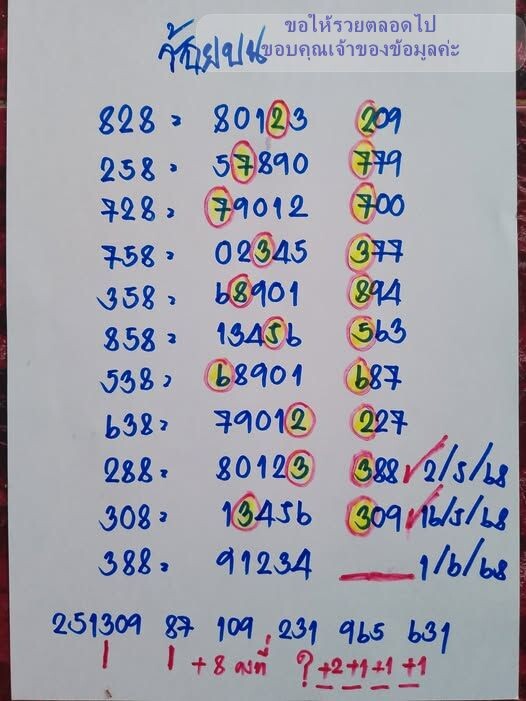 ขอให้รวยตลอดไป
ขอบคุณเจ้าของข้อมูลค่ะ
828 = 80123 209
258 = 57890 779
728 = 79012 700
758 = 02345 377
358 = 68901 894
858 = 13456 563
538 = 68901 687
638 = 79012 227
288 = 80123 388 ✓ 2/5/68
308 = 13456 309 ✓ 16/5/68
388 = 91234 ___ 1/6/68
251309 87 109 231 965 631
1 1 +8 คงที่ ? +2 +1 +1 +1